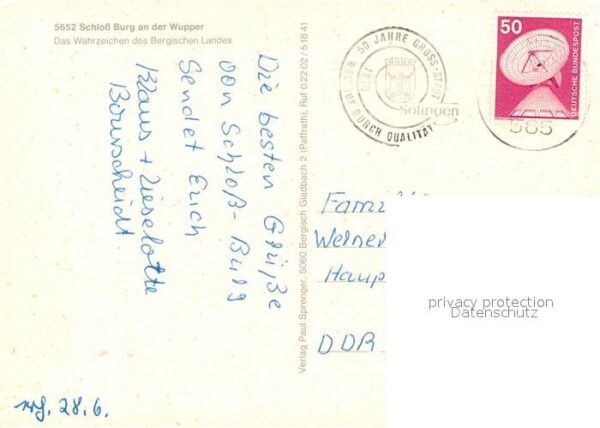 5652 Schloß Burg an der Wupper
Das Wahrzeichen des Bergischen Landes
Die besten Grüße
von Schloß-Burg
Sendet Euch
Klaus + Lieselotte
Bourscheidt
28.6.
Verlag Paul Sprenger, 5060 Bergisch Gladbach 2 (Paffrath), Ruf 0 22 02 / 5 18 41
50 JAHRE GROSS-STADT
1979
Solingen
DURCH QUALITÄT
565
50
DEUTSCHE BUNDESPOST
Werner
Haup
DDR
privacy protection
Datenschutz